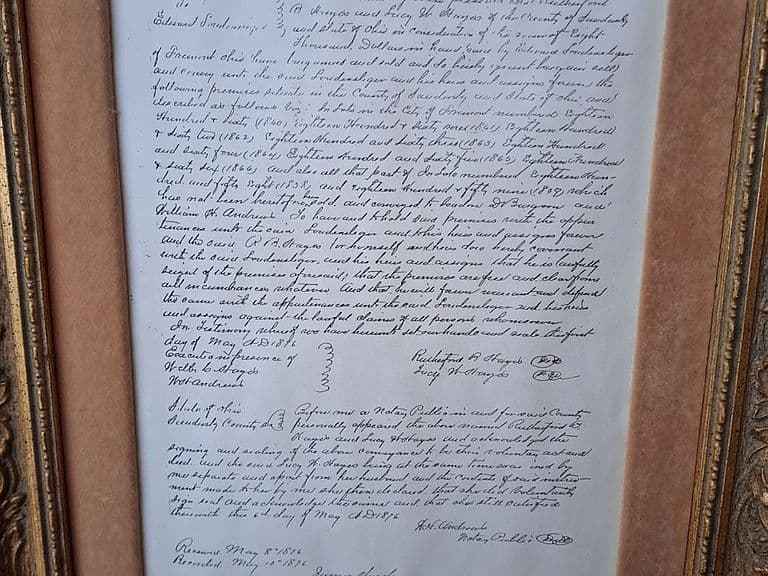 To
Edward Loudensleger } B Hayes and Lucy W Hayes of the County of Sandusky
and State of Ohio in consideration of the sum of Eight
Thousand Dollars in hand paid by Edward Loudensleger
of Fremont Ohio have bargained and sold and do hereby grant bargain sell
and convey unto the said Loudensleger and his heirs and assigns forever, the
following premises situate in the County of Sandusky and State of Ohio and
described as follows viz: In lots in the City of Fremont numbered Eighteen
Hundred & Sixty, (1860) Eighteen Hundred & Sixty one (1861) Eighteen Hundred
& Sixty two (1862) Eighteen Hundred and Sixty three (1863) Eighteen Hundred
and Sixty four (1864) Eighteen Hundred and Sixty five (1865) Eighteen Hundred
& Sixty six (1866) and also all that part of In lots numbered Eighteen Hun-
dred and fifty Eight (1858) and Eighteen Hundred & fifty nine (1859) which
has not been heretofore sold and conveyed to Burgoon and
William H. Andrews To have and to hold said premises with the appur
tenances unto the said Loudensleger and his heirs and assigns forever
and the said R B Hayes for himself and heirs does hereby covenant
with the said Loudensleger, and his heirs and assigns that he is lawfully
seized of the premises aforesaid; that the premises are free and clear from
all incumbrances whatever And that he will forever warrant and defend
the same with the appurtenances unto the said Loudensleger and his heirs
and assigns against the lawful claims of all persons whomsoever
In Testimony whereof we have hereunto set our hands and seals the first
day of May A.D 1876
Executed in presence of
Webb C Hayes
W H Andrews
Rutherford B Hayes
Lucy W Hayes
State of Ohio
Sandusky County SS } Before me a Notary Public in and for said County
personally appeared the above named Rutherford B
Hayes and Lucy W Hayes and acknowledged the
signing and sealing of the above conveyance to be their voluntary act and
deed. And the said Lucy W Hayes being at the same time examined by
me separate and apart from her husband and the content of said instru
ment made to her by me she then declared that she did Voluntarily
sign seal and acknowledge the same and that she is satisfied
therewith this 6th day of May A.D 1876
W.H. Andrews
Notary Public
Received May 8th 1876
Recorded May 10th 1876